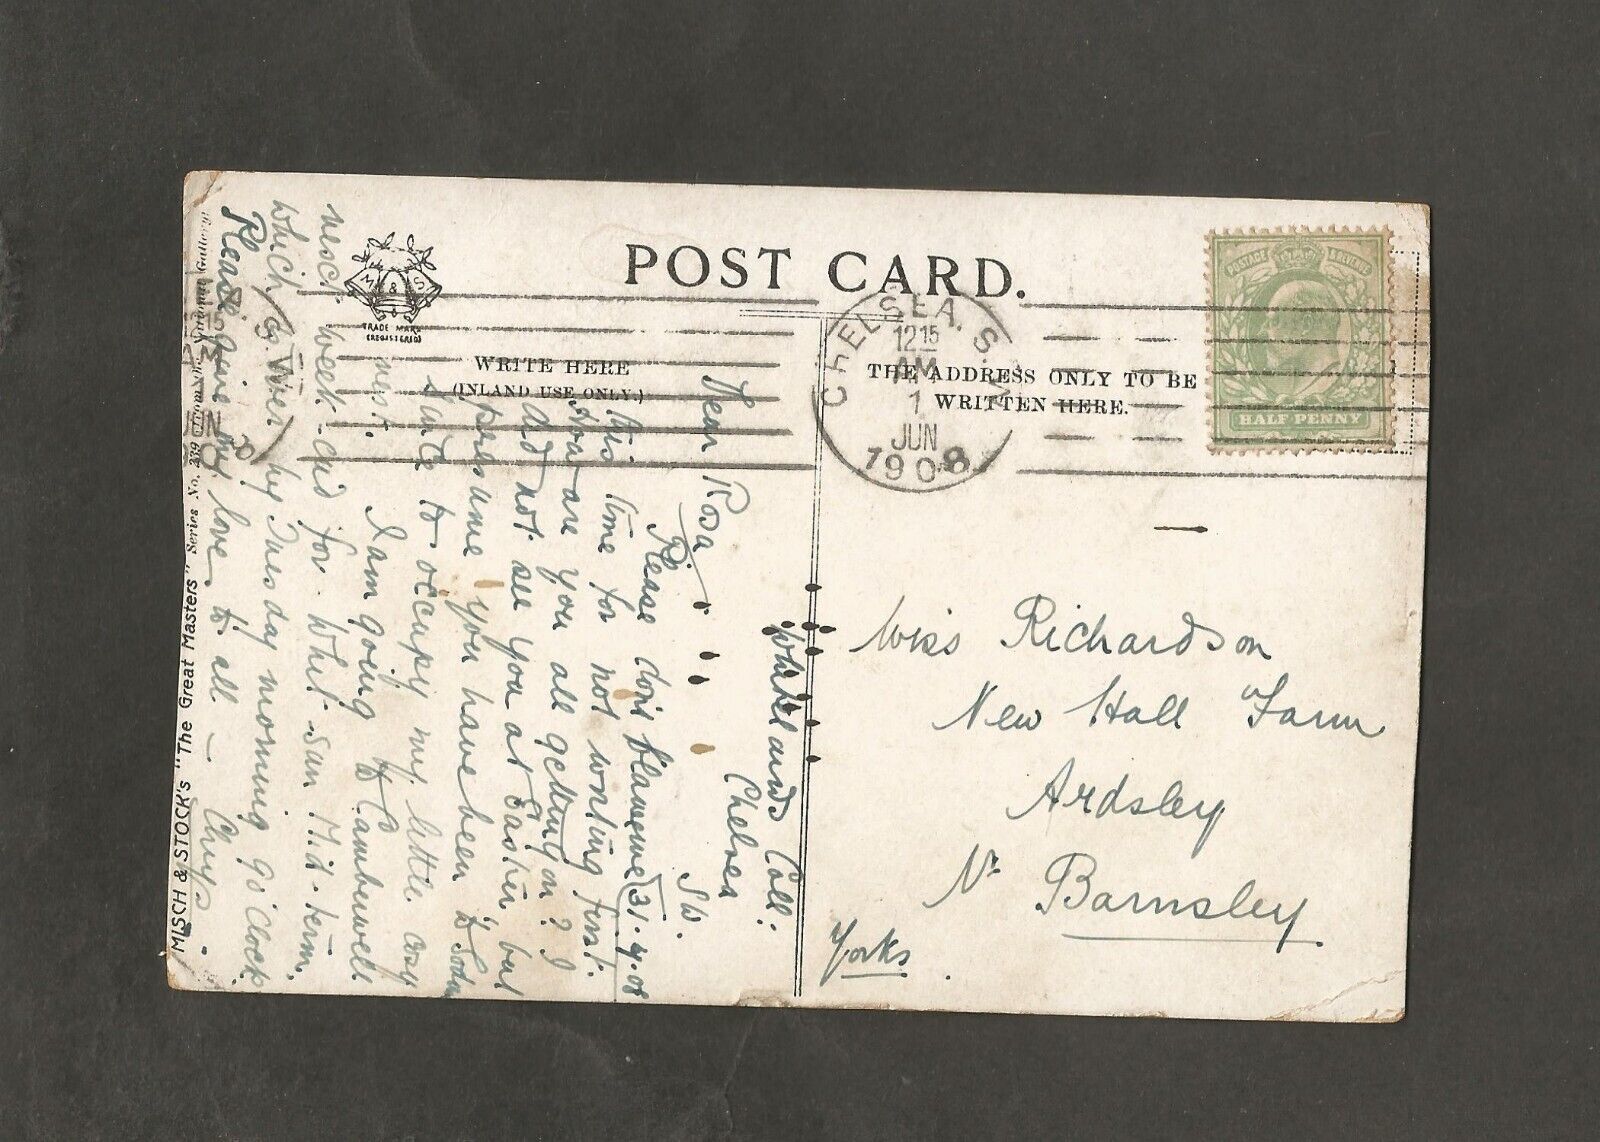 POST CARD.
M & S
TRADE MARK
(REGISTERED)
WRITE HERE
(INLAND USE ONLY.)
THE ADDRESS ONLY TO BE
WRITTEN HERE.
CHELSEA. S.W.
1215
AM
1
JUN
1908
POSTAGE & REVENUE
HALF PENNY
Miss Richardson
New Hall Farm
Ardsley
Nr Barnsley
Yorks.
Whitelands Coll:
Chelsea
S.W.
Dear Rosa
Please don't blame me 31.
this time for not writing first.
How are you all getting on? I
did not see you at Easter but
presume you have been to
to occupy my little cosy
nest.
I am going to Camberwell
next week-end for Whit-Sun Mid-term.
which is over by Tuesday morning 9 o'clock.
Please give my love to all —
MISCH & STOCK'S "The Great Masters" Series No. Gallery